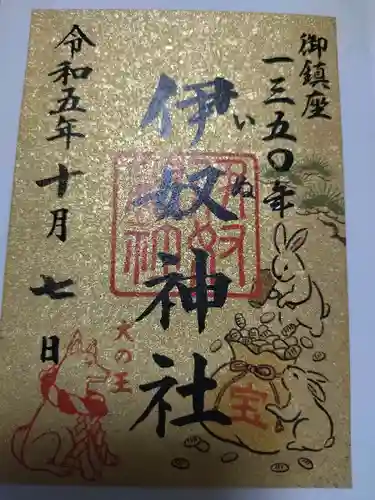 御鎮座
一三五〇年
伊奴神社
いぬ
令和五年十月七日
犬の王
宝